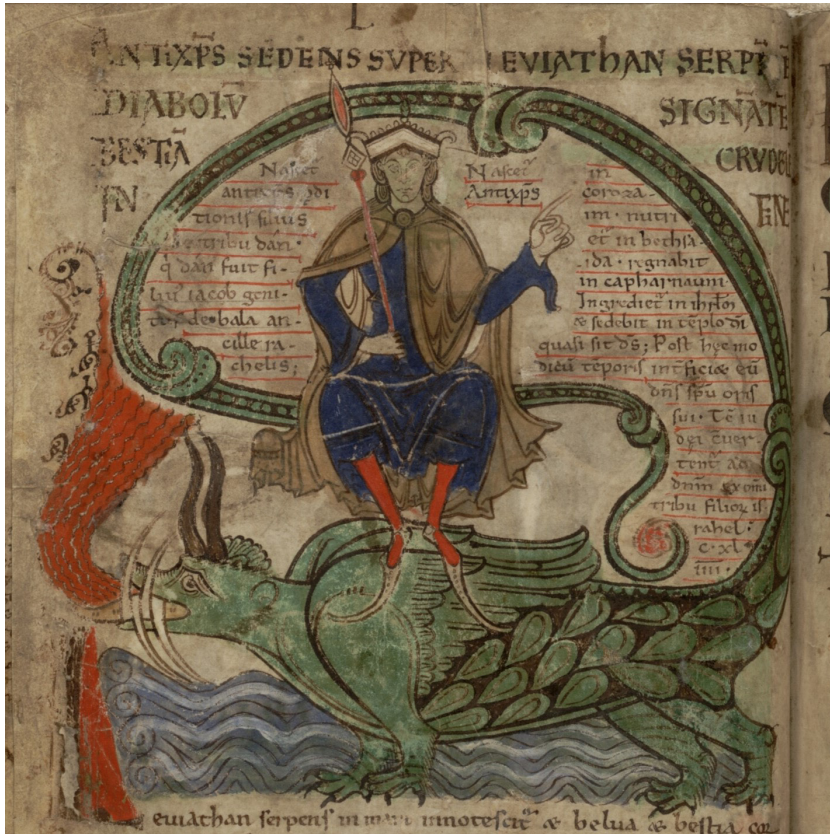 L
ANTIXP̄S SEDENS SVPER LEVIATHAN SERPĒTĒ
DIABOLŪ SIGNĀTĒ
BESTIĀ CRVDELĒ
IN FINE
Nascet̄
antixp̄s ꝑdi
tionis filius
de tribu dan·
q̄ dan fuit fi-
lius iacob geni-
tus de bala an-
cille ra-
chelis;
Nascet̄ in
Antixp̄s coroza-
im· nutri
et̄ in bethsa-
ida· regnabit
in capharnaum·
Ingrediet̄ in ihrl̄m
& sedebit in tēplo dī
quasi sit dс̄; Post hec mo
dicū tēporis intficiæ eū
dn̄s sp̄u oris
sui· Tc̄ iu
dei cuer-
tent̄ ad
dn̄m ex om̄i
tribu filioꝝ is
rahel·
C· XL
IIII·
euiathan serpens in mari innotescit̄ & belua & bestia